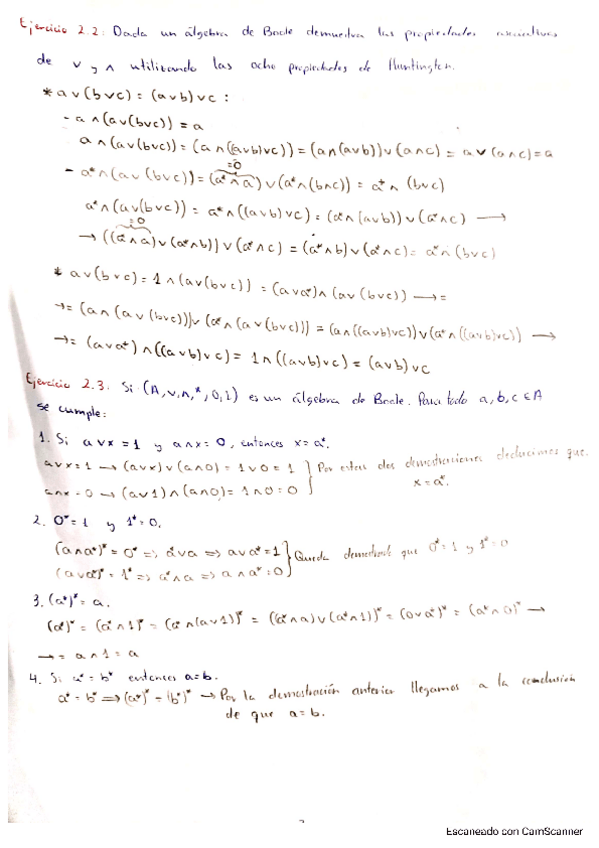 Ejercicio 2.2: Dada un álgebra de Boole demuestra las propiedades asociativas
de ∨ y ∧ utilizando las ocho propiedades de Huntington.
* a∨(b∨c) = (a∨b)∨c :
- a∧(a∨(b∨c)) = a
a∧(a∨(b∨c)) = (a∧((a∨b)∨c)) = (a∧(a∨b))∨(a∧c) = a∨(a∧c) = a
- a*∧(a∨(b∨c)) = (a*∧a)∨(a*∧(b∧c)) = a*∧(b∨c)
=0
a*∧(a∨(b∨c)) = a*∧((a∨b)∨c) = (a*∧(a∨b))∨(a*∧c) →
=0
→ ((a*∧a)∨(a*∧b))∨(a*∧c) = (a*∧b)∨(a*∧c) = a*∧(b∨c)
* a∨(b∨c) = 1∧(a∨(b∨c)) = (a∨a*)∧(a∨(b∨c)) → =
→ = (a∧(a∨(b∨c)))∨(a*∧(a∨(b∨c))) = (a∧((a∨b)∨c))∨(a*∧((a∨b)∨c)) →
→ = (a∨a*)∧((a∨b)∨c) = 1∧((a∨b)∨c) = (a∨b)∨c
Ejercicio 2.3. Si (A,∨,∧,*,0,1) es un álgebra de Boole. Para todo a,b,c ∈ A
se cumple:
1. Si a∨x = 1 y a∧x = 0, entonces x = a*.
a∨x = 1 → (a∨x)∨(a∧0) = 1∨0 = 1 } Por estas dos demostraciones deducimos que
a∧x = 0 → (a∨1)∧(a∧0) = 1∧0 = 0 x = a*.
2. 0* = 1 y 1* = 0.
(a∧a*)* = 0* => a*∨a => a∨a* = 1 } Queda demostrado que 0* = 1 y 1* = 0
(a∨a*)* = 1* => a*∧a => a∧a* = 0
3. (a*)* = a.
(a*)* = (a*∧1)* = (a*∧(a∨1))* = ((a*∧a)∨(a*∧1))* = (0∨a*)* = (a*∧0)* →
→ = a∧1 = a
4. Si a* = b* entonces a = b.
a* = b* => (a*)* = (b*)* → Por la demostración anterior llegamos a la conclusión
de que a = b.
Escaneado con CamScanner